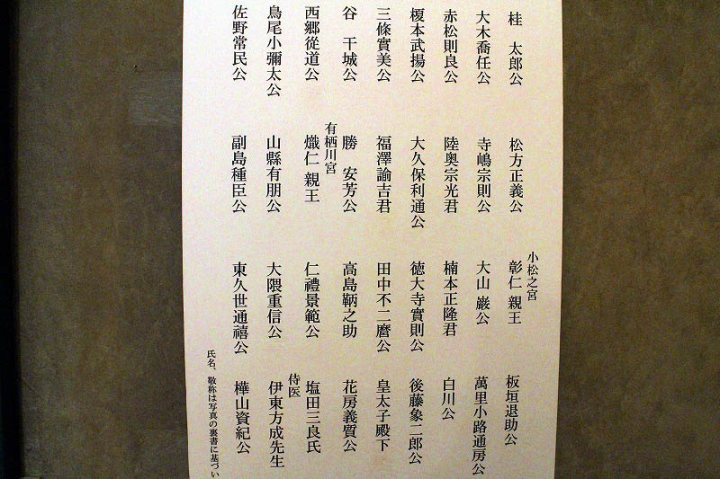 桂 太郎公
松方正義公
小松之宮
彰仁 親王
板垣退助公
大木喬任公
寺嶋宗則公
大山 巌公
萬里小路通房公
赤松則良公
陸奥宗光君
楠本正隆君
白川公
榎本武揚公
大久保利通公
徳大寺實則公
後藤象二郎公
三條實美公
福澤諭吉君
田中不二麿公
皇太子殿下
谷 干城公
勝 安芳公
高島鞆之助
花房義質公
西郷從道公
有栖川宮
熾仁 親王
仁禮景範公
塩田三良氏
鳥尾小彌太公
山縣有朋公
大隈重信公
侍医
伊東方成先生
佐野常民公
副島種臣公
東久世通禧公
樺山資紀公
氏名、敬称は写真の裏書に基づい